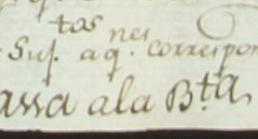 tos nes
Suj. a q. correspon
assa ala Bta